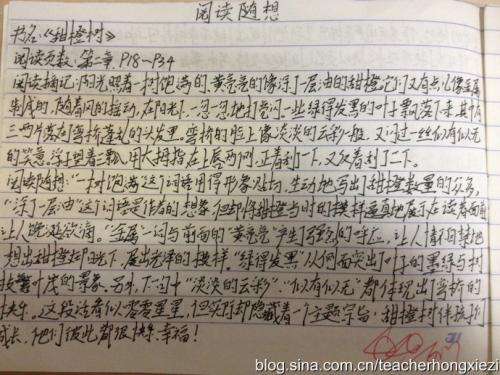 阅读随想
书名:《甜橙树》
阅读页数:第二章 P18～P34
阅读摘记:阳光照着一树饱满的,黄亮亮的像浮了一层油的甜橙,它们又有点儿像金属
集成的,随着风的摇动,在阳光下一忽一忽地打着闪。一些绿得发黑的叶子飘落下来,其中
三两片落在弯桥蓬乱的头发里,弯桥的脸上像淡淡的云彩一般,又闪过一丝似有似无
的笑意,浮子望着,用大拇指在上唇两侧,正着刮了一下,又反着刮了一下。
阅读随想:"一树饱满"这个词语用得形象贴切,生动地写出了甜橙数量的众多,
"浮了一层油"这个词语是作者的想象,但却将甜橙当时的模样逼真地展示在读者面前
让人垂涎欲滴。"金属"一词与前面的"黄亮亮"产生了强烈的呼应,让人情不自禁地
想出甜橙在阳光下,展出光泽的模样。"绿得发黑"从侧面突出了叶子的墨绿与树
枝繁叶茂的景象。另外,下句中"淡淡的云彩"、"似有似无"都体现出了弯桥的
快乐。这段话看似零零星星,但实际却隐藏着一个主题字眼:甜橙树伴孩子们
成长,他们彼此都很快乐、幸福!
blog.sina.com.cn/teacherhongxiezi